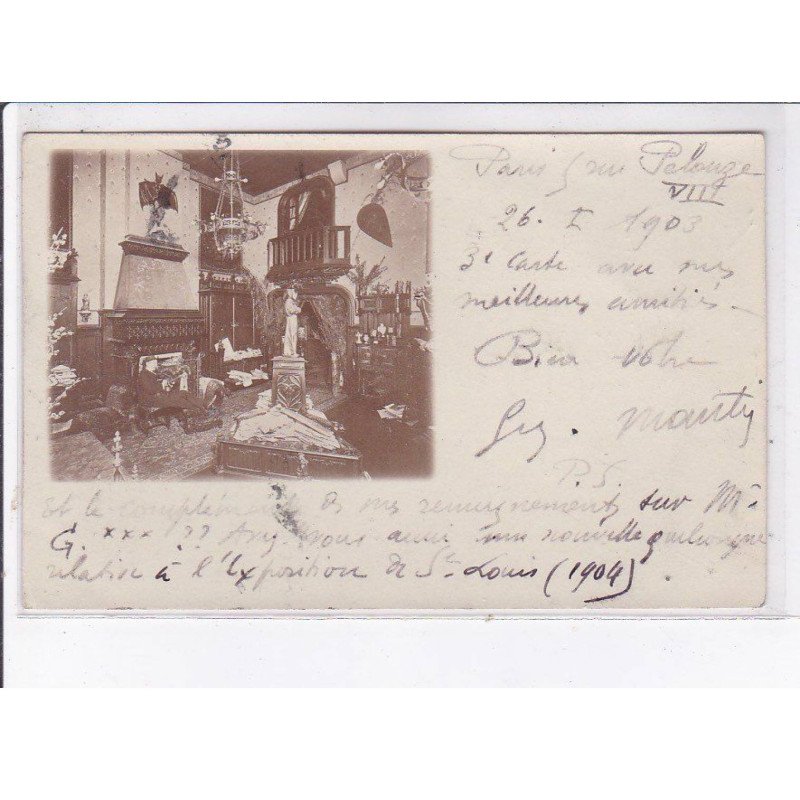 Paris 5 rue Pelouze
VIII
26. I 1903
3e Carte avec mes
meilleures amitiés.
Bien votre
Guy.
P.S.
Et le complément de vos renseignements sur Mr
G. xxx ?? Avez vous aussi une nouvelle quelconque
relative à l'Exposition de St Louis (1904).